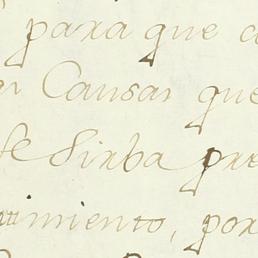 para que
Causas que
se Sirba pre
imiento, por